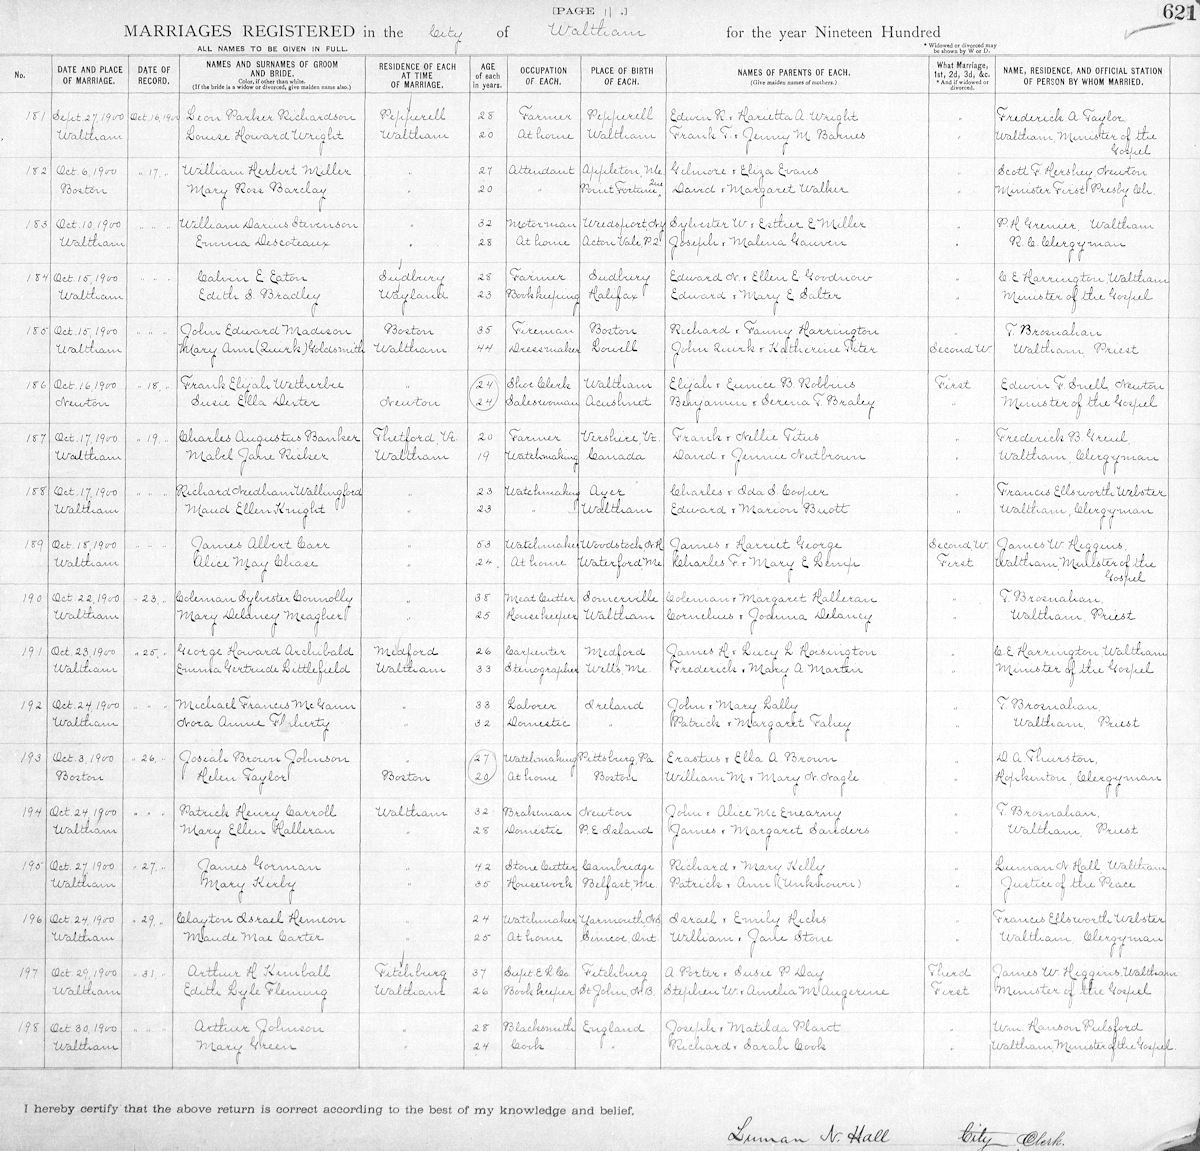 [PAGE 11.]
621
MARRIAGES REGISTERED in the City of Waltham for the year Nineteen Hundred
ALL NAMES TO BE GIVEN IN FULL.
* Widowed or divorced may be shown by W or D.
No. DATE AND PLACE OF MARRIAGE. DATE OF RECORD. NAMES AND SURNAMES OF GROOM AND BRIDE. Color, if other than white. (If the bride is a widow or divorced, give maiden name also.) RESIDENCE OF EACH AT TIME OF MARRIAGE. AGE of each in years. OCCUPATION OF EACH. PLACE OF BIRTH OF EACH. NAMES OF PARENTS OF EACH. (Give maiden names of mothers.) What Marriage, 1st, 2d, 3d, &c. * And if widowed or divorced. NAME, RESIDENCE, AND OFFICIAL STATION OF PERSON BY WHOM MARRIED.
181 Sept. 27, 1900 Oct. 16, 1900 Leon Parker Richardson Pepperell 28 Farmer Pepperell Edwin R. & Harietta A Wright " Frederick A Taylor
Waltham Louise Howard Wright Waltham 20 At home Waltham Frank T. & Jenny M Barnes " Waltham, Minister of the Gospel
182 Oct. 6, 1900 " 17, " William Herbert Miller " 27 Attendant Appleton, Me. Gilmore & Eliza Evans " Scott F Hershey Newton
Boston Mary Ross Barclay " 20 " Point Fortune Que David & Margaret Walker " Minister First Presby Ch.
183 Oct. 10, 1900 " " " William Darius Stevenson " 32 Motorman Weedsport N.y Sylvester W & Esther E Miller " P.H Grenier, Waltham
Waltham Emma Descoteaux " 28 At home Acton Vale P.Q Joseph & Malena Gauven " R. C. Clergyman
184 Oct. 15, 1900 " " " Calvin E Eaton Sudbury 28 Farmer Sudbury Edward N. & Ellen E Goodnow " C. E Harrington Waltham
Waltham Edith S Bradley Wayland 23 Bookkeeping Halifax Edward & Mary E Salter " Minister of the Gospel
185 Oct. 15, 1900 " " " John Edward Madison Boston 35 Fireman Boston Richard & Fanny Harrington " T Brosnahan
Waltham Mary Ann (Quirk) Goldsmith Waltham 44 Dressmaker Lowell John Quirk & Katherine Titer Second W Waltham, Priest
186 Oct. 16, 1900 " 18, " Frank Elijah Wetherbee " 24 Shoe Clerk Waltham Elijah & Eunice B. Robbins First Edwin F Snell, Newton
Newton Susie Ella Dexter Newton 24 Saleswoman Acushnet Benjamin & Serena T. Braley " Minister of the Gospel
187 Oct. 17, 1900 " 19, " Charles Augustus Banker Thetford, Vt. 20 Farmer Vershire, Vt. Frank & Nellie Titus " Frederick B. Greul,
Waltham Mabel Jane Ricker Waltham 19 Watchmaking Canada David & Jennie Nutbrown " Waltham, Clergyman
188 Oct. 17, 1900 " " " Richard Needham Wallingford " 23 Watchmaking Ayer Charles & Ida S Cooper " Francis Ellsworth Webster
Waltham Maud Ellen Knight " 23 " Waltham Edward & Marion Buott " Waltham, Clergyman
189 Oct. 18, 1900 " " " James Albert Carr " 53 Watchmaker Woodstock N.H James & Harriet George Second W James W. Higgins,
Waltham Alice May Chase " 24 At home Waterford Me Charles F. & Mary E Kemp First Waltham Minister of the Gospel
190 Oct. 22, 1900 " 23, " Coleman Sylvester Connolly " 38 Meat Cutter Somerville Coleman & Margaret Halleran " T. Brosnahan,
Waltham Mary Delaney Meagher " 25 Housekeeper Waltham Cornelius & Joanna Delaney " Waltham, Priest
191 Oct. 23, 1900 " 25, " George Howard Archibald Medford 26 Carpenter Medford James H. & Lucy L Horsington " C. E Harrington Waltham
Waltham Emma Gertrude Littlefield Waltham 33 Stenographer Wells, Me. Frederick & Mary A Marten " Minister of the Gospel
192 Oct. 24, 1900 " " " Michael Francis McGann " 33 Laborer Ireland John & Mary Lally " T. Brosnahan,
Waltham Nora Annie Flaherty " 32 Domestic " Patrick & Margaret Fahey " Waltham, Priest
193 Oct. 3, 1900 " 26, " Josiah Brown Johnson " 27 Watchmaking Pittsburg, Pa Erastus & Ella A Brown " D A Thurston,
Boston Helen Taylor Boston 20 At home Boston William M & Mary N. Nagle " Hopkinton, Clergyman
194 Oct. 24, 1900 " " " Patrick Henry Carroll Waltham 32 Brakeman Newton John & Alice McEnearny " T. Brosnahan,
Waltham Mary Ellen Halleran " 28 Domestic P. E Island James & Margaret Sanders " Waltham, Priest
195 Oct. 27, 1900 " 27, " James Gorman " 42 Stone Cutter Cambridge Richard & Mary Kelly " Luman N Hall Waltham
Waltham Mary Kirby " 35 Housework Belfast, Me. Patrick & Ann (Unknown) " Justice of the Peace
196 Oct. 24, 1900 " 29, " Clayton Israel Hemeon " 24 Watchmaker Yarmouth, N.S Israel & Emily Hicks " Francis Ellsworth Webster
Waltham Maude Mae Carter " 25 At home Simcoe, Ont William & Jane Stone " Waltham, Clergyman
197 Oct. 29, 1900 " 31, " Arthur H Kimball Fitchburg 37 Supt E. L. Co. Fitchburg A Porter & Susie P. Day Third James W. Higgins, Waltham
Waltham Edith Lyle Fleming Waltham 26 Bookkeeper St John, N.B. Stephen W. & Amelia M Augerine First Minister of the Gospel
198 Oct 30, 1900 " " " Arthur Johnson " 28 Blacksmith England Joseph & Matilda Plant " Wm. Hanson Pulsford
Waltham Mary Green " 24 Cook " Richard & Sarah Cook " Waltham, Minister of the Gospel
I hereby certify that the above return is correct according to the best of my knowledge and belief.
Luman N. Hall City Clerk.